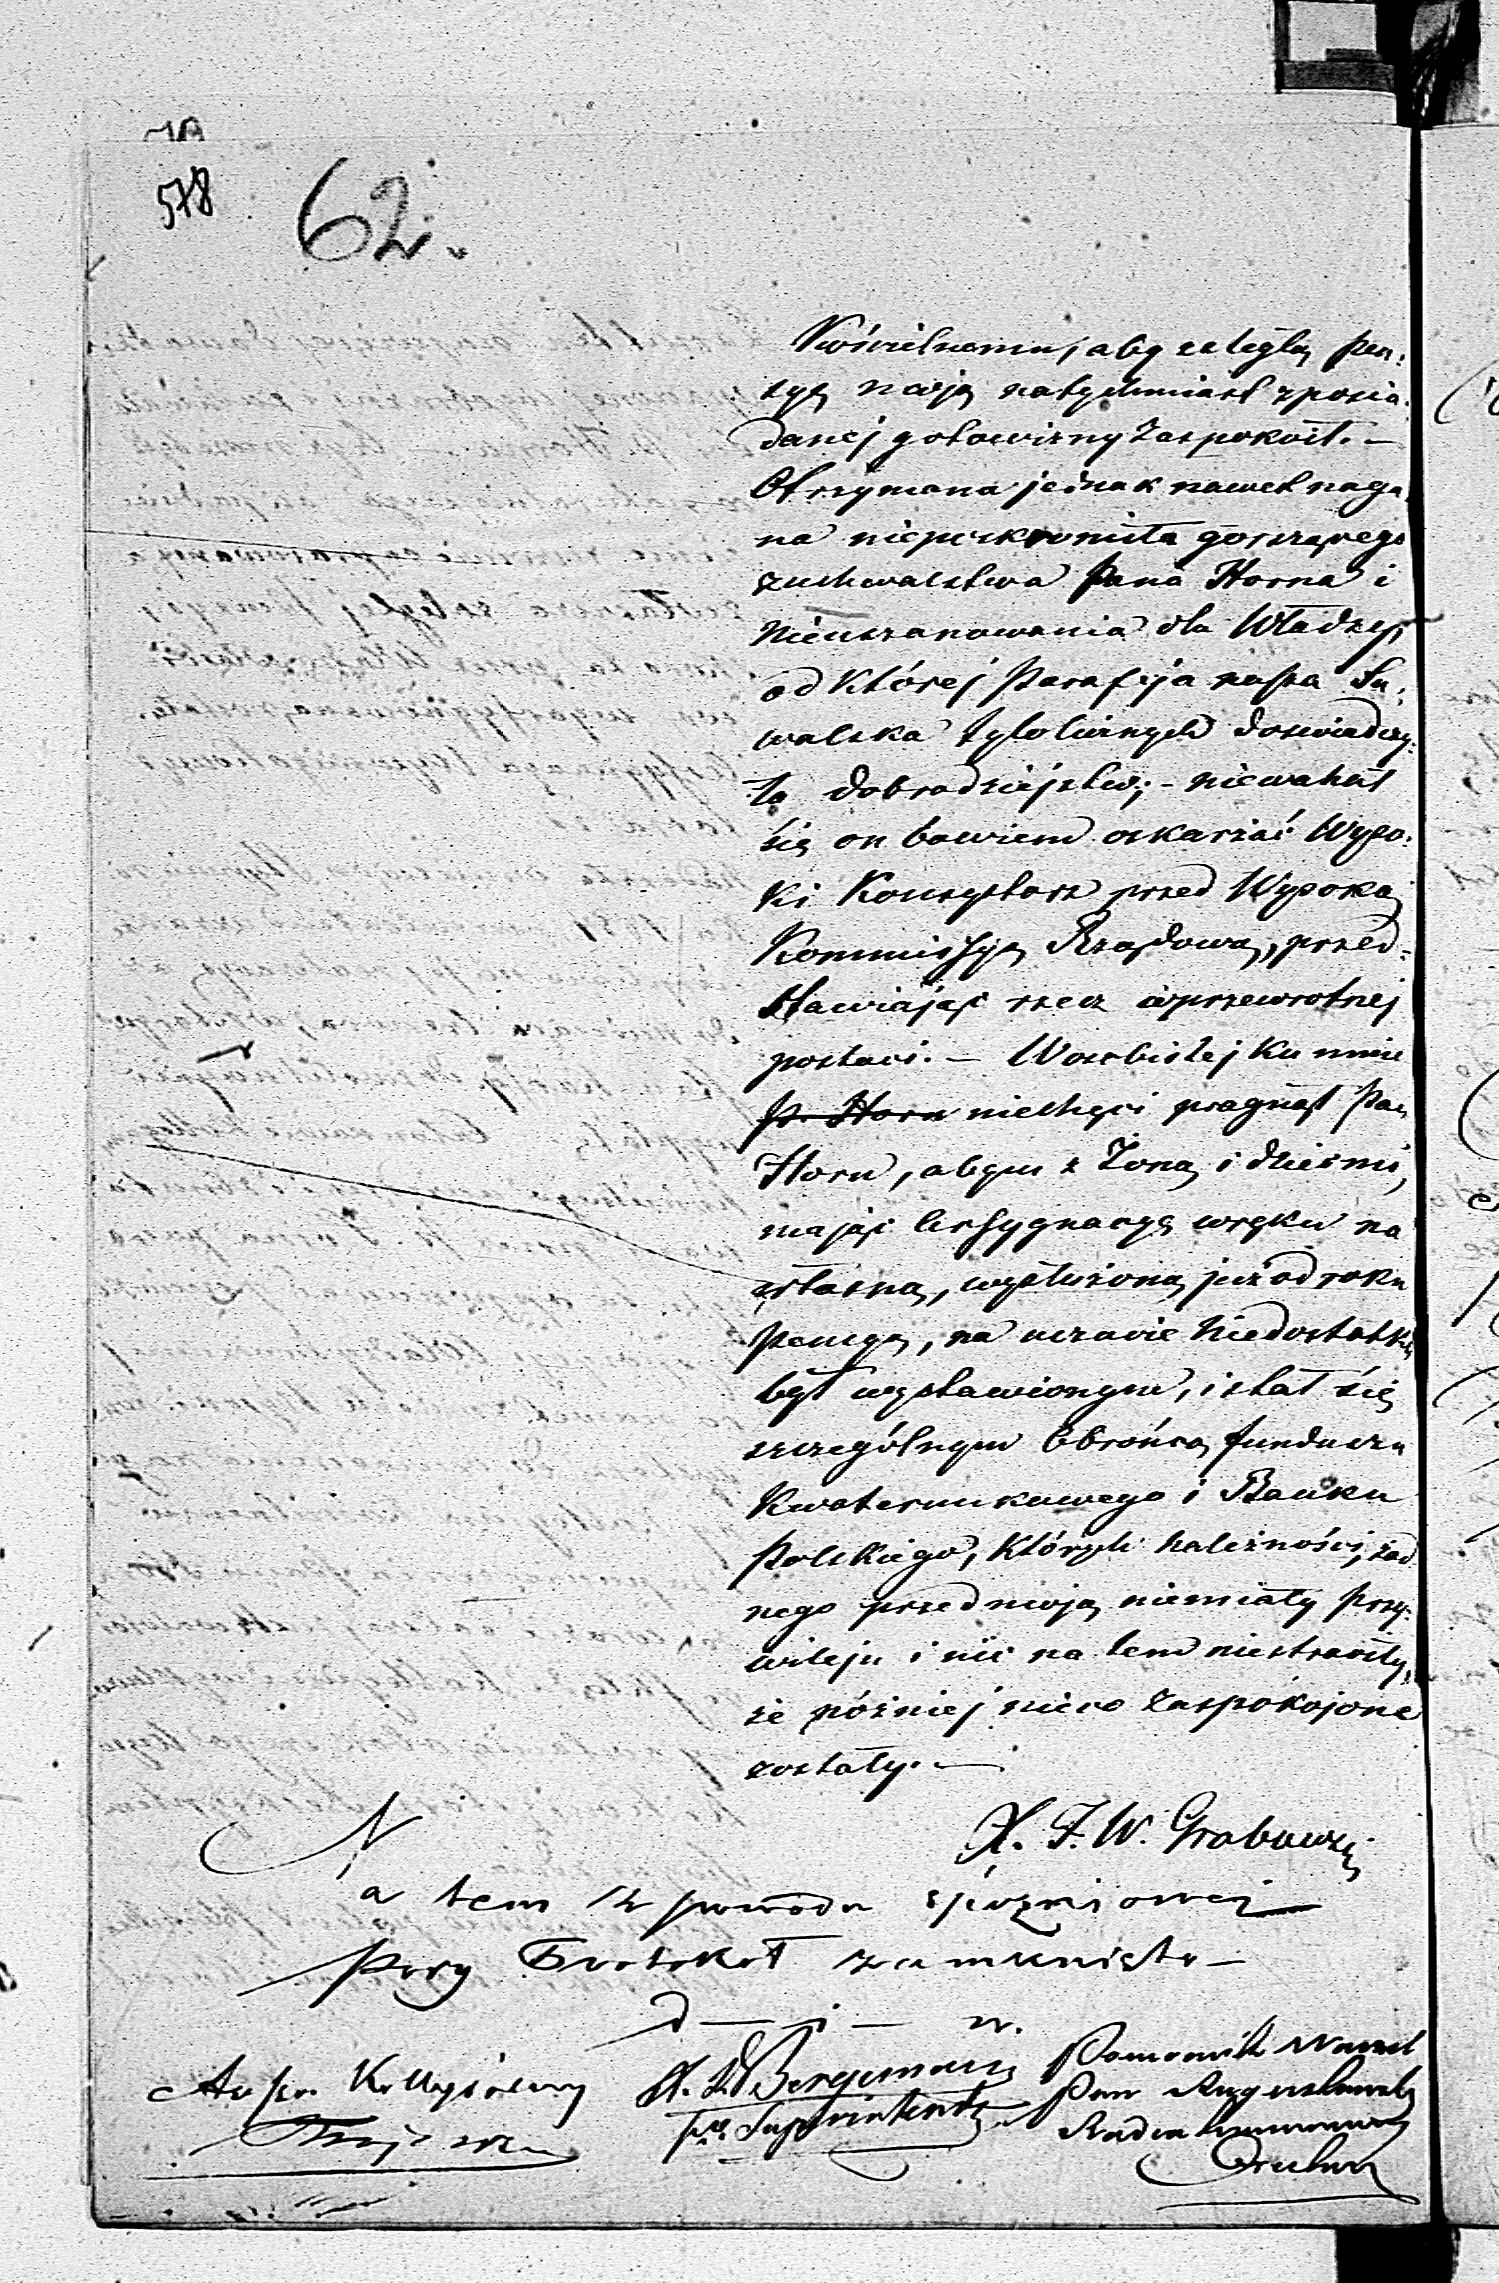 578
62.
Kościelnemu, aby zaległą pen-
syą moją natychmiast z posia-
danej gotowizny zaspokoił. —
Otrzymana jednak nawet naga-
na nieposkromiła gorszącego
zuchwalstwa Pana Horna i
nieuszanowania dla Władzy,
od której Parafija nasza Su-
walska tylolicznych doświadczy-
ła dobrodziejstw; – niewahał
się on bowiem oskarżać Wyso-
ki Konsystorz przed Wysoką
Kommissyą Rządową, przed-
stawiając rzecz w przewrotnej
postaci. — W osobistej ku mnie
P. Horn niechęci pragnął Pan
Horn, abym z Żoną i dziećmi,
mając assygnacyą w ręku na
własną, wysłużoną już od roku
Pensyą, na uczucie niedostatku
był wystawionym, i stał się
szczególnym Obrońcą funduszu
Kwaterunkowego i Banku
Polskiego, których należności, żad-
nego przed moją niemiały przy-
wileju i nic na tem niestraciły,
że później nieco zaspokojone
zostały. —
X. F. W. Grabowski
Na tem z powodu spóźnionej
Pory Protokół zamknięto —
d — i — w.
Assr. Kollegialny
X. Bergemann
Superintendent
Pomocnik Nacz.
Pow. Augustowsk.
Radca